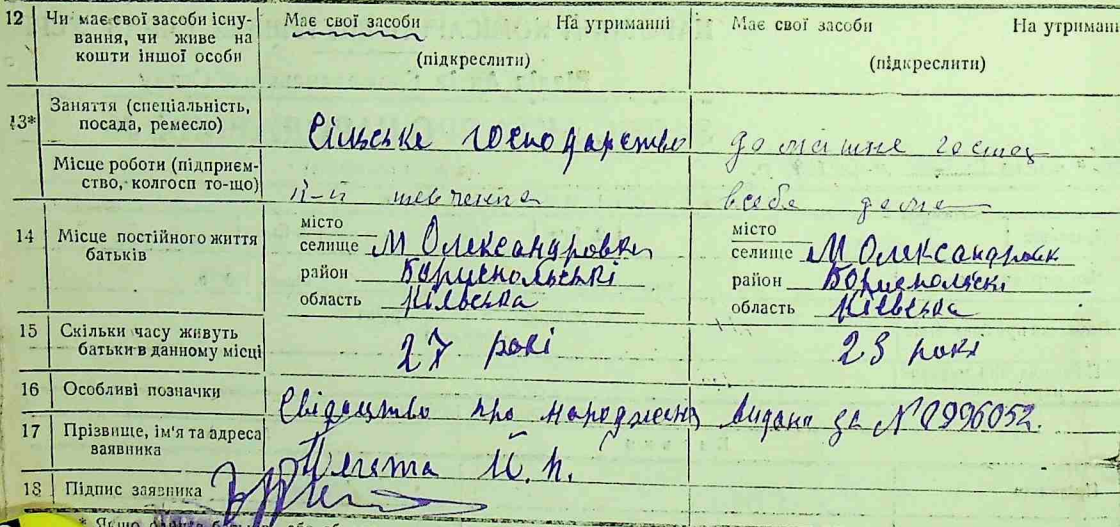 12 Чи має свої засоби існу- Має свої засоби На утриманні Має свої засоби На утриманні
вання, чи живе на
кошти іншої особи (підкреслити) (підкреслити)
13* Заняття (спеціальність,
посада, ремесло) Сільське господарство домашнє господ
Місце роботи (підприєм-
ство, колгосп то-що) к-п шевченка в себе дома
14 Місце постійного життя
батьків
місто
селище М Олександровка
район Бориспольські
область Київська
місто
селище М Олександровк
район Бориспольскі
область Київська
15 Скільки часу живуть
батьки в данному місці 27 рокі 23 рокі
16 Особливі позначки Свідоцтво про народжена видано за № 0996052.
17 Прізвище, ім'я та адреса
заявника Й. П.
18 Підпис заявника
* Якщо